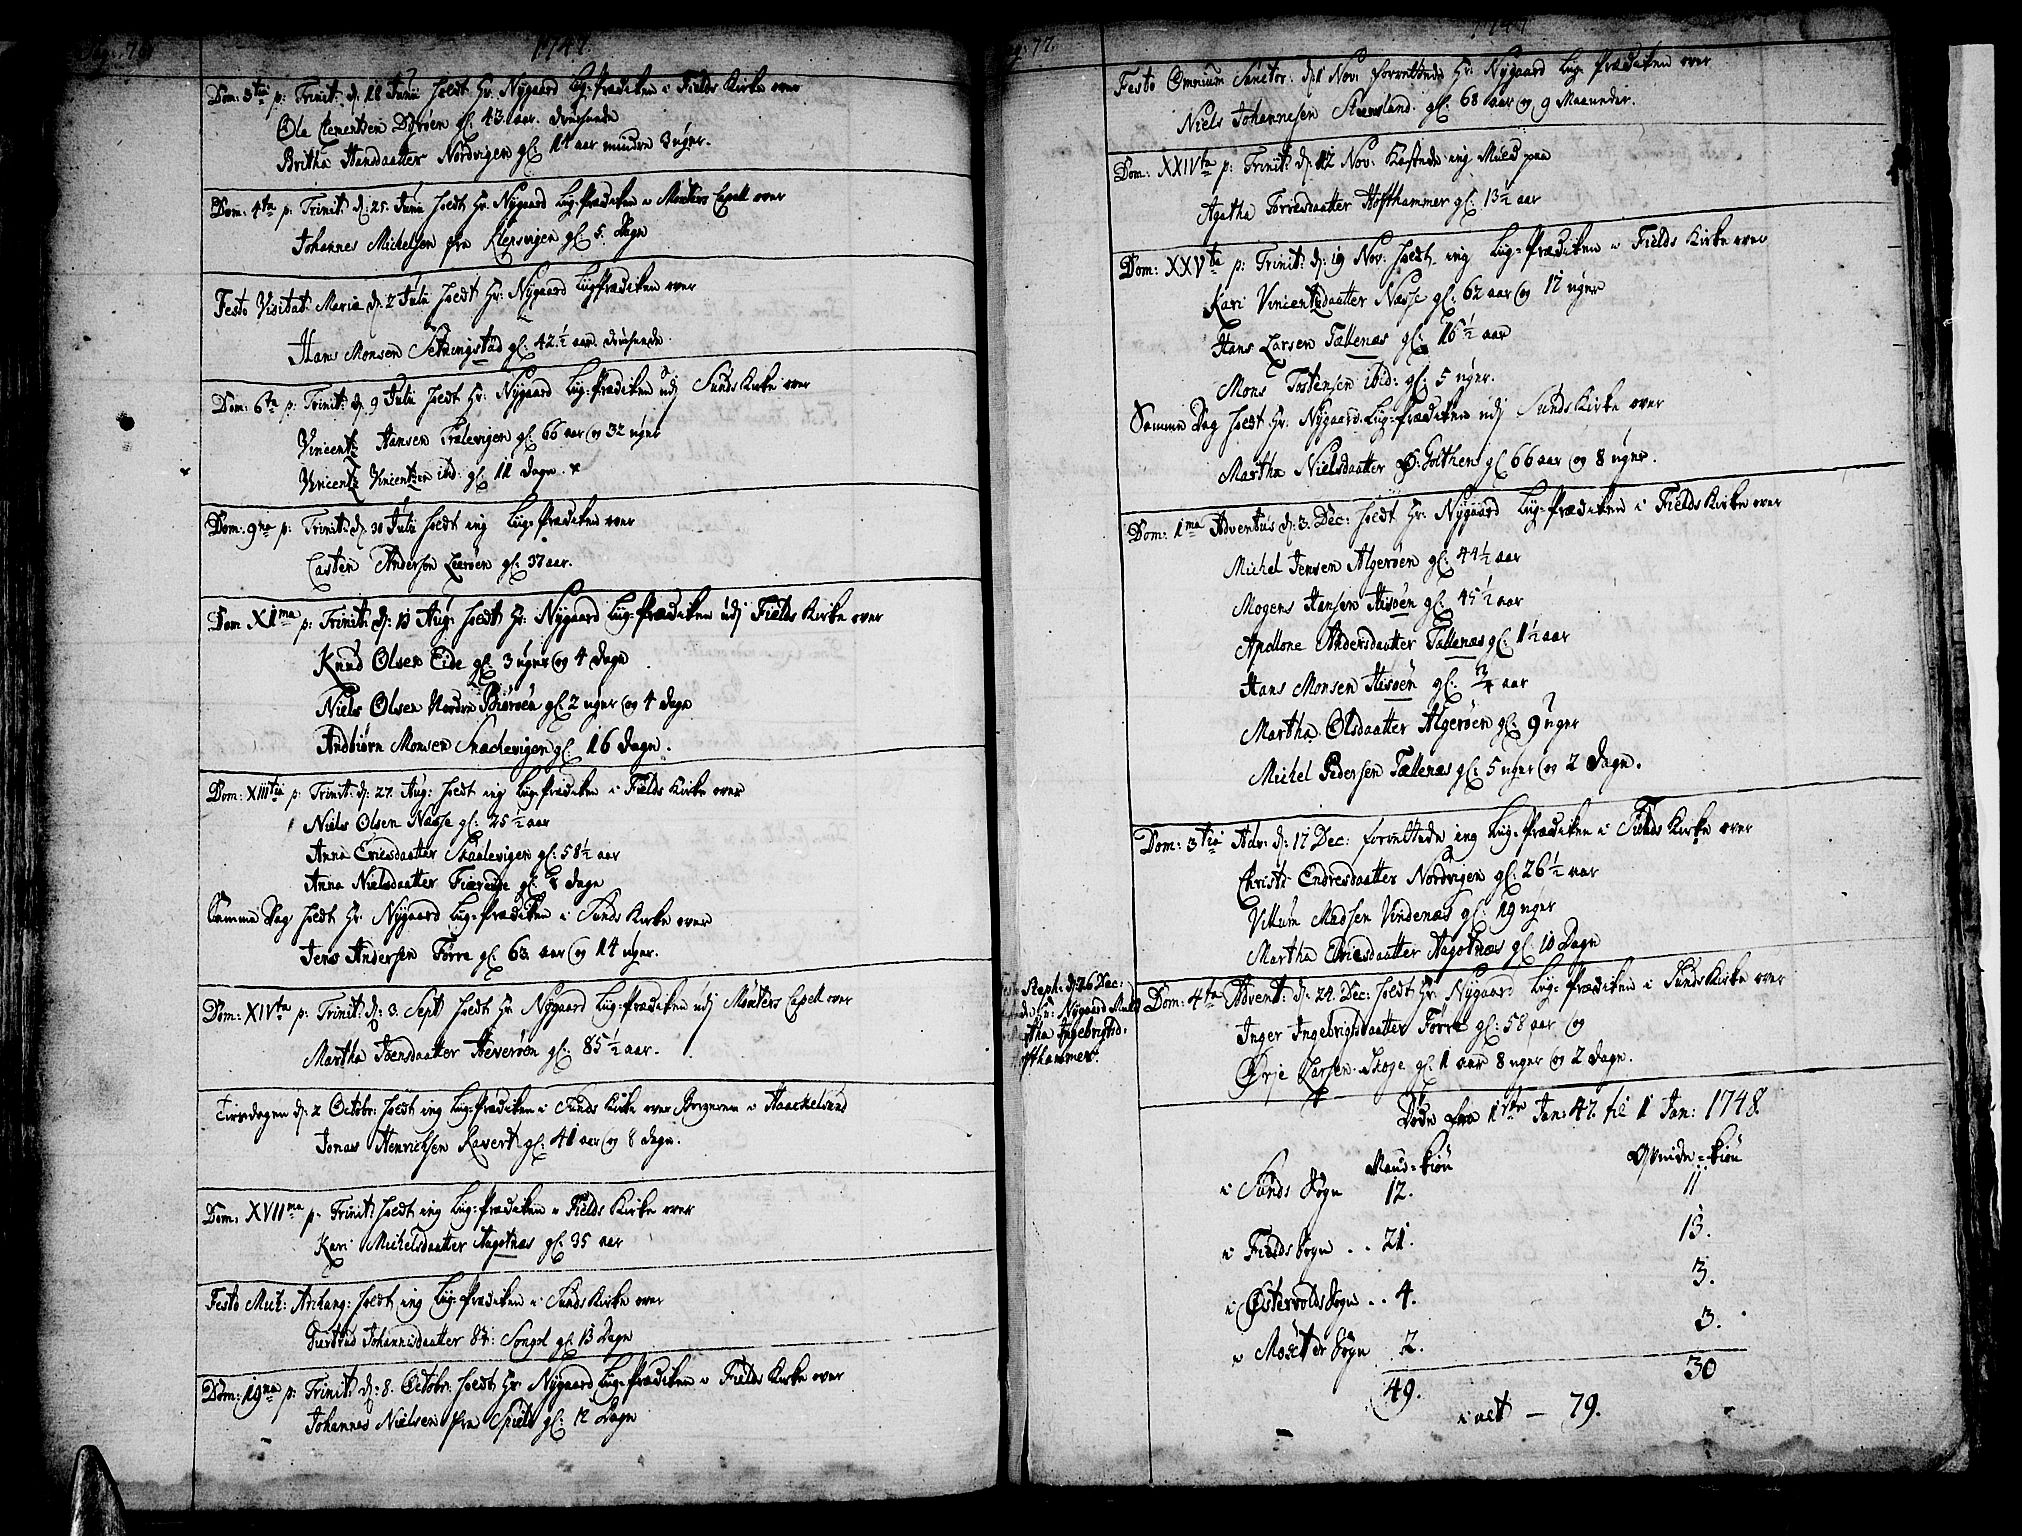 1747.
Dom: 3tia p: Trinit: d: 18 Junii holdt Hr: Nygaard Liig-Prædiken i Fields Kirke over
Ole Clementsen Dyrøen gl: 43. aar.
Britha Hansdaatter Nordvigen gl: 14 aar mindre 3 uger.
Dom: 4ta p: Trinit: d: 25. Junii holdt Hr: Nygaard Liig-Prædiken i Mosters Capell over
Johannes Michelsen fra Klepsvigen gl: 5. Dage
Festo Visitat: Mariæ d: 2 Julii holdt Hr: Nygaard Liigprædiken over
Hans Monsen Setningstad gl: 42½ aar.
Dom: 6ta p: Trinit: d: 9 Julii holdt Hr: Nygaard Liig-Prædiken udj Sunds Kirke over
Vincentz Hansen Trælevigen gl: 66 aar og 32 uger
Vincentz Vincentzen ibid: gl: 11 Dage.
Dom: 9na p: Trinit: d: 30 Julii holdt ieg Liig-Prædiken over
Casten Anderson Leerøen gl: 37 aar.
Dom XIma p: Trinit: d: 13 Aug: holdt Hr: Nygaard Liig-Prædiken udj Fields Kirke over
Knud Olsen Eide gl: 3 uger og 4 Dage
Niels Olsen Nordre Biørøen gl: 2 uger og 4 Dage
Andbiørn Monsen Snachevigen gl: 16 Dage.
Dom: XIIItia p: Trinit: d: 27. Aug: holdt ieg Liig-Prædiken i Fields Kirke over
Niels Olsen Næsse gl: 25½ aar
Anna Ericsdaatter Skaalevigen gl: 58½ aar
Anna Nielsdaatter Fiæreide gl: Dage
Samme Dag holdt Hr: Nygaard Liig-Prædiken i Sunds Kirke over
Jens Andersen Førre gl: 63 aar og 14 uger.
Dom: XIVta p: Trinit: d: 3. Sept: holdt Hr: Nygaard Liig-Prædiken udj Mosters Capell over
Martha Tændaatter Hæverøen gl: 85½ aar.
Tirsdagen d: 2 Octobr: holdt ieg Liig-Prædiken i Sunds Kirke over Borgeren i Haackelsund
Jonas Henrichsen Ravert gl: 41 aar og 8 Dage.
Dom: XVIIma p: Trinit: holdt ieg Liig-Prædiken i Fields Kirke over
Kari Michelsdaatter Aagotnæs gl: 35 aar
Festo Mich: Archang: holdt ieg Liig-Prædiken i Sunds Kirke over
Giertrud Johannisdaatter Songel gl: 13 Dage
Dom: 19na p: Trinit: d: 8. Octobr: holdt Hr: Nygaard Liig-Prædiken i Fields Kirke over
Johannes Nielsen fra Spield gl: 12 Dage
pag: 77.
1747
Festo Omnium Sanctor: d: 1 Nov: forrettede Hr: Nygaard Liig-Prædiken over
Niels Johannesen Steensland gl: 68 aar og 9 Maaneder.
Dom: XXIVta p: Trinit: d: 12 Nov: kastede ieg Muld paa
Agatha Torresdaatter Hofthammer gl: 13½ aar
Dom: XXVta p: Trinit: d: 19 Nov: holdt ieg Liig-Prædiken i Fields Kirke over
Kari Vincentzdaatter Næsse gl: 62 aar og 12 uger
Hans Larsen Tællenæs gl: 16½ aar
Mons Tostensen ibid: gl: 5 uger.
Samme Dag holdt Hr: Nygaard Liig-Prædiken udj Sunds Kirke over
Martha Nielsdaatter Ø: Golthen gl: 66 aar og 8 uger.
Dom: 1ma Adventus d: 3. Dec: holdt Hr: Nygaard Liig-Prædiken i Fields Kirke over
Michel Jensen Algerøen gl: 44½ aar
Mogens Hansen Hisøen gl: 45½ aar
Apollone Andersdaatter Tællenæs gl: 1½ aar
Hans Monsen Hisøen gl: ¾ aar
Martha Olsdaatter Algerøen gl: 9 uger
Michel Pedersen Tællenæs gl: 5 uger og 2 Dage.
Dom: 3tia Adv: d: 17 Dec: forrettede ieg Liig-Prædiken i Sunds Kirke over
Christi Endresdaatter Nordvigen gl: 26½ aar
Villum Madsen Vindenæs gl: 19 uger
Martha Ericsdaatter Aagotnæs gl: 10 Dage
Steph: d: 26 Dec:
Hr: Nygaard Muld
Martha Ingebrigtsd:
Hofthammer.
Dom: 4ta Advent: d: 24. Dec: holdt Hr: Nygaard Liig-Prædiken i Sunds Kirke over
Inger Ingebrigtsdaatter Førre gl: 58 aar og
Ørje Larsen Skoge gl: 1 aar 8 uger og 2 Dage.
Døde fra 1ste Jan: 47. til 1 Jan: 1748.
Mand-kiøn Qvinde-kiøn
i Sunds Sogn 12. 11
i Fields Sogn .. 21. 13.
i Østervolds Sogn .. 4. 3.
i Møster Sogn 2. 3.
49. 30
i alt — 79.